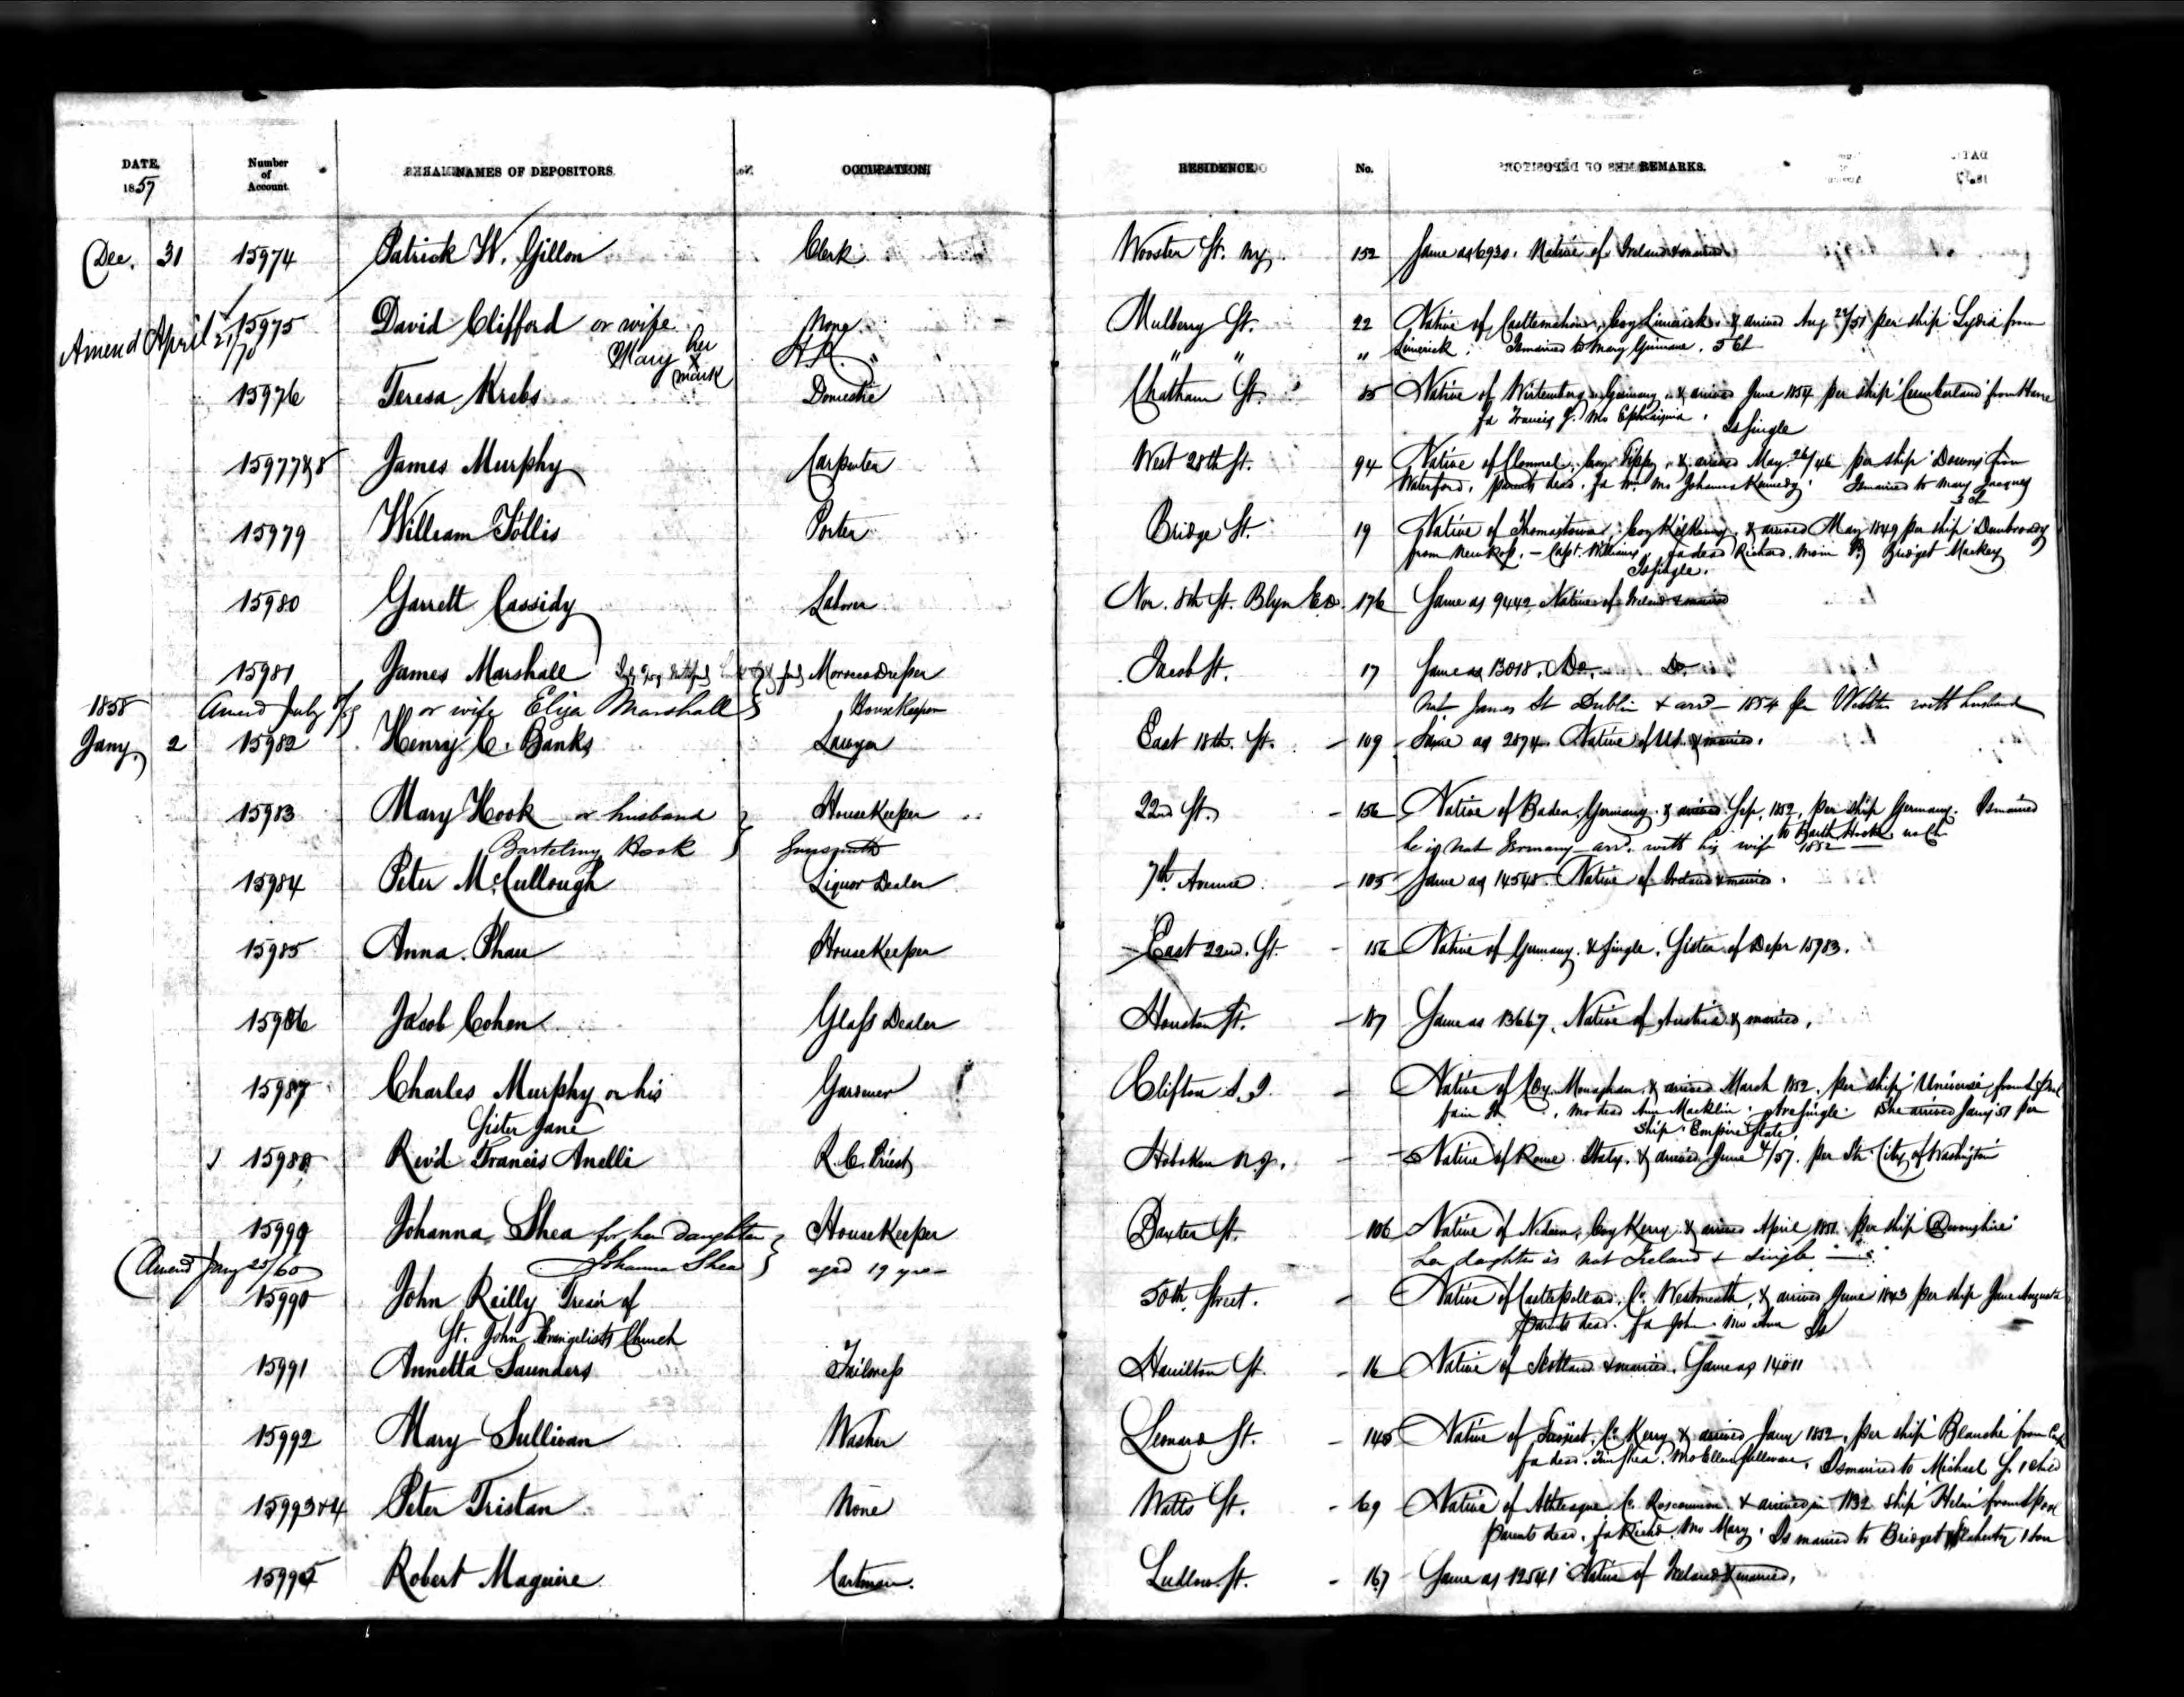 DATE. Number of Account. NAMES OF DEPOSITORS. OCCUPATION. RESIDENCE. No. REMARKS.
1857
Dec. 31 15974 Patrick W. Gillon Clerk Wooster St. NY. 152 Same as 6930. Native of Ireland & married
15975 David Clifford or wife None Mulberry St. 22 Native of Coy Limerick & arrived Aug 22/51 per ship Lydia from
Amend April 21/70 Mary her X mark H.K. " " " Limerick. Is married to Mary Guinane. 5 Ch
15976 Teresa Krebs Domestic Chatham St. 85 Native of Wirtemberg Germany & arrived June 1854 per ship Cumberland from Havre
fa Francis J. Mo Is Single
15977&8 James Murphy Carpenter West 28th St. 94 Native of Clonmel, Coy Tippy. & arrived May 26/46 per ship Downs from
Waterford. parents dead. fa Wm. Mo Johanna Kennedy. Is married to Mary Jacques
3 ch
15979 William Tóllis Porter Bridge St. 19 Native of Thomastown Coy Kilkenny & arrived May 1849 per ship Dunbrody
from New Ross. – Capt. Williams fa dead Richard. Mo Bridget Mackey
Is Single.
15980 Garrett Cassidy Laborer Nor. 8th St. Blyn E.D. 176 Same as 9442 Native of Ireland & married
15981 James Marshall Morocco Dresser Jacob St. 17 Same as 13018. Do. Do.
1858 Amend July or wife Eliza Marshall HouseKeeper Nat James St Dublin & arrd – 1854 per with husband
Jany. 2 15982 Henry C. Banks Lawyer East 18th. St. – 109 Same as 2874. Native of U.S. & married.
15983 Mary Hook or husband HouseKeeper 22nd St. – 156 Native of Baden. Germany & arrived Sep. 1852, per ship Germany. Is married
to Barth Hook no Ch
Bartelmy Hook Gunsmith he is Nat Germany arr. with his wife 1852 –
15984 Peter McCullough Liquor Dealer 7th Avenue – 105 Same as 14548. Native of Ireland & married.
15985 Anna Phau HouseKeeper East 22nd. St. – 156 Native of Germany. & Single. Sister of Depr 15983.
15986 Jacob Cohen Glass Dealer Houston St. – 187 Same as 13667. Native of Austria & married.
15987 Charles Murphy or his Gardener Clifton S.I. – Native of Coy. Monaghan. & arrived March 1852. per ship Universe from L.pool
Sister Jane mo dead Ann Macklin. Are Single. She arrived Jany 51 per
ship Empire State.
15988 Rev'd Francis Anelli R.C. Priest Hoboken N.J. – Native of Rome Italy. & arrived June 4/57. per Str. City of Washington
15989 Johanna Shea for her daughter HouseKeeper Baxter St. – 106 Native of Coy Kerry & arrived April 1851 per ship Devonshire
Amend Jany 25/60 Johanna Shea aged 19 yrs – her daughter is Nat Ireland & Single
15990 John Reilly Treas'r of 50th. Street. – Native of Castlepollard, Co. Westmeath, & arrived June 1843 per ship Jane Augusta
St. John Evangelists Church parents dead. fa John. Mo Ann
15991 Annetta Saunders Tailoress Hamilton St. – 16 Native of Scotland & married. Same as 14011
15992 Mary Sullivan Washer Leonard St. – 145 Native of Co. Kerry & arrived Jany 1852, per ship Blanche from Cork
fa dead. Tim Shea. Mo Ellen Sullivan. Is married to Michael S. 1 Child
15993&4 Peter Tristan None Watts St. – 69 Native of Athleague Co. Roscommon & arrived in 1832 ship Helen from L.pool
parents dead. fa Richd. Mo Mary. Is married to Bridget Flaherty 1 Son
15995 Robert Maguire Cartman. Ludlow St. – 167 Same as 12541 Native of Ireland & married.